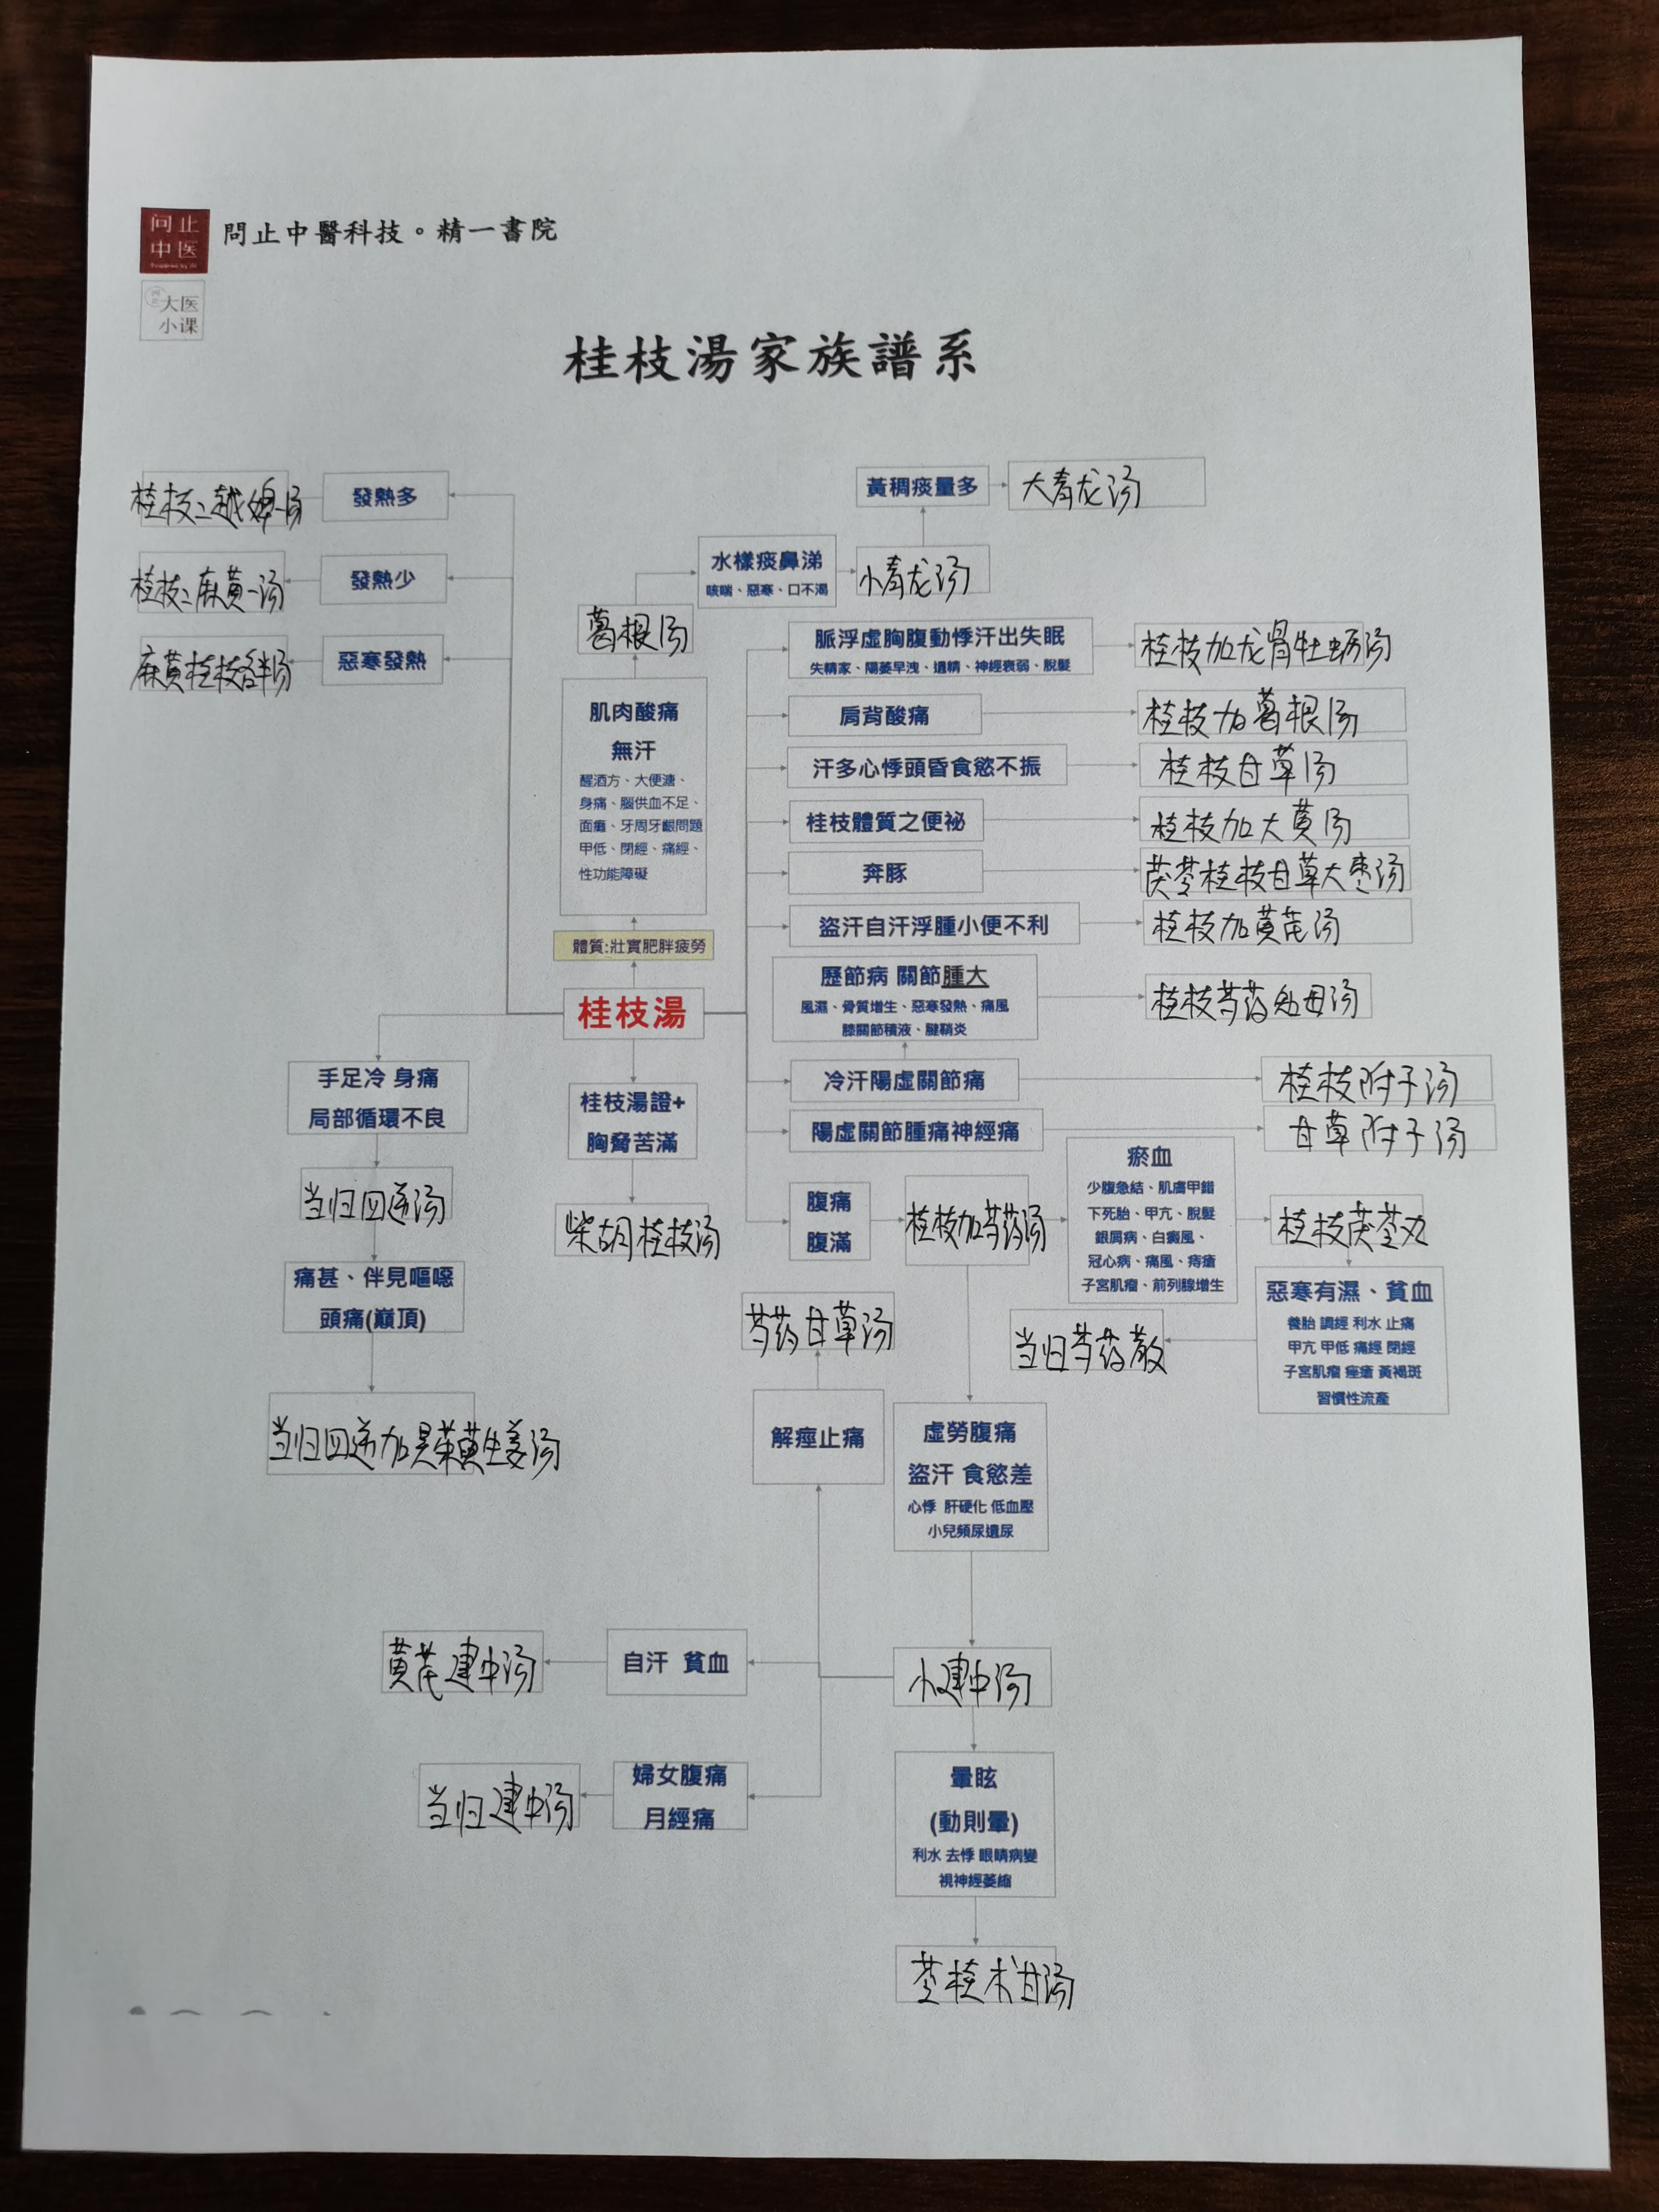 问止
中医
Powered by AI
問止中醫科技。精一書院
大医
小课
桂枝湯家族譜系
桂枝二越婢一汤
發熱多
桂枝二麻黄一汤
發熱少
麻黄桂枝各半汤
惡寒發熱
黃稠痰量多
大青龙汤
水樣痰鼻涕
咳喘、惡寒、口不渴
小青龙汤
葛根汤
肌肉酸痛
無汗
醒酒方、大便溏、
身痛、腦供血不足、
面癱、牙周牙齦問題
甲低、閉經、痛經、
性功能障礙
體質:壯實肥胖疲勞
桂枝湯
脈浮虛胸腹動悸汗出失眠
失精家、陽萎早洩、遺精、神經衰弱、脫髮
桂枝加龙骨牡蛎汤
肩背酸痛
桂枝加葛根汤
汗多心悸頭昏食慾不振
桂枝甘草汤
桂枝體質之便祕
桂枝加大黄汤
奔豚
茯苓桂枝甘草大枣汤
盜汗自汗浮腫小便不利
桂枝加黄芪汤
歷節病 關節腫大
風濕、骨質增生、惡寒發熱、痛風
膝關節積液、腱鞘炎
桂枝芍药知母汤
冷汗陽虛關節痛
桂枝附子汤
陽虛關節腫痛神經痛
甘草附子汤
手足冷 身痛
局部循環不良
当归四逆汤
痛甚、伴見嘔噁
頭痛(巔頂)
当归四逆加吴茱萸生姜汤
桂枝湯證+
胸脅苦滿
柴胡桂枝汤
腹痛
腹滿
桂枝加芍药汤
瘀血
少腹急結、肌膚甲錯
下死胎、甲亢、脫髮
銀屑病、白癜風、
冠心病、痛風、痔瘡
子宮肌瘤、前列腺增生
桂枝茯苓丸
惡寒有濕、貧血
養胎 調經 利水 止痛
甲亢 甲低 痛經 閉經
子宮肌瘤 痤瘡 黃褐斑
習慣性流產
当归芍药散
芍药甘草汤
解痙止痛
虛勞腹痛
盜汗 食慾差
心悸 肝硬化 低血壓
小兒頻尿遺尿
小建中汤
自汗 貧血
黄芪建中汤
婦女腹痛
月經痛
当归建中汤
暈眩
(動則暈)
利水 去悸 眼睛病變
視神經萎縮
苓桂术甘汤